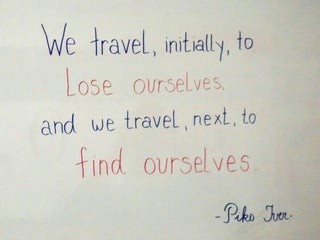 We travel, initially, to
Lose ourselves.
and we travel, next, to
find ourselves
-Piko Iyer-